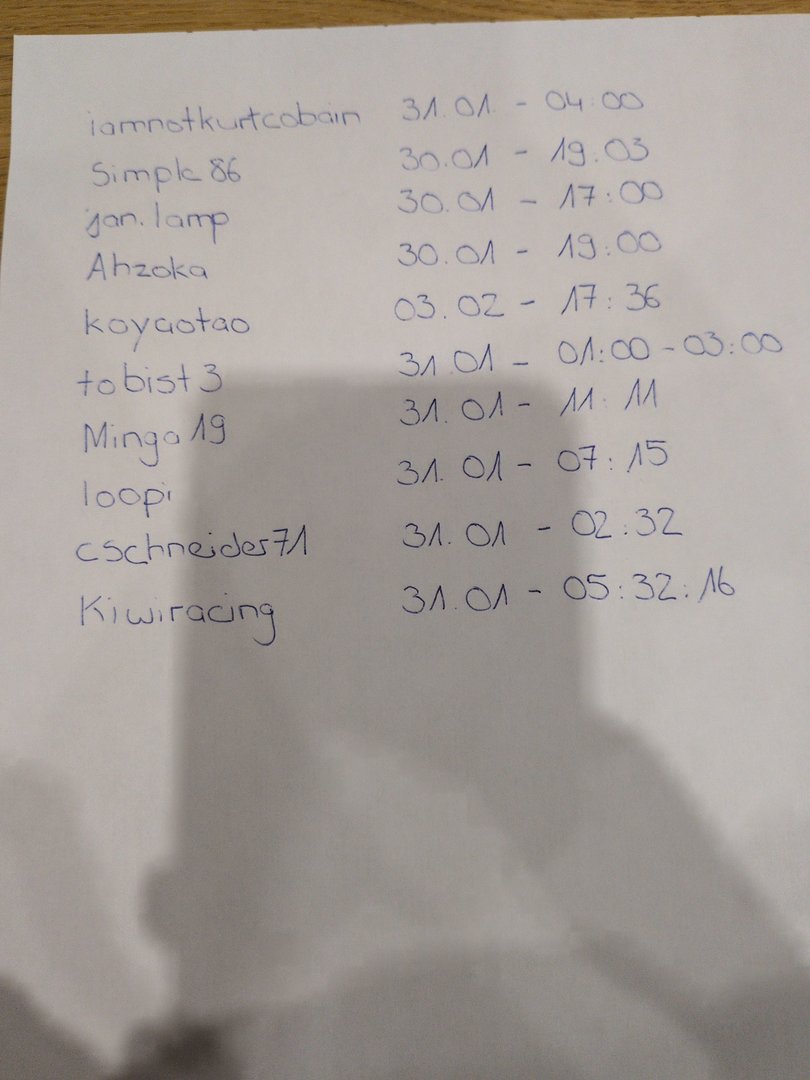 iamnotkurtcobain 31.01 - 04:00
Simple86 30.01 - 19.03
jan.lamp 30.01 - 17:00
Ahzoka 30.01 - 19:00
koyaotao 03.02 - 17:36
tobist3 31.01 - 01:00 - 03:00
Minga19 31.01 - 11:11
loopi 31.01 - 07:15
cschneider71 31.01 - 02:32
Kiwiracing 31.01 - 05:32:16